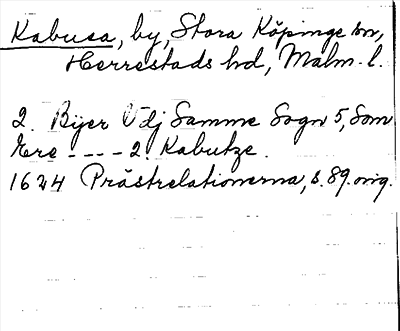 Kabusa, by, Stora Köpinge sn,
Herrestads hd, Malm. l.
2. Byer Udj Samme Sogn 5, Som
Ere - - - - 2. Kabutze.
1624 Prästrelationerna, s. 89. orig.